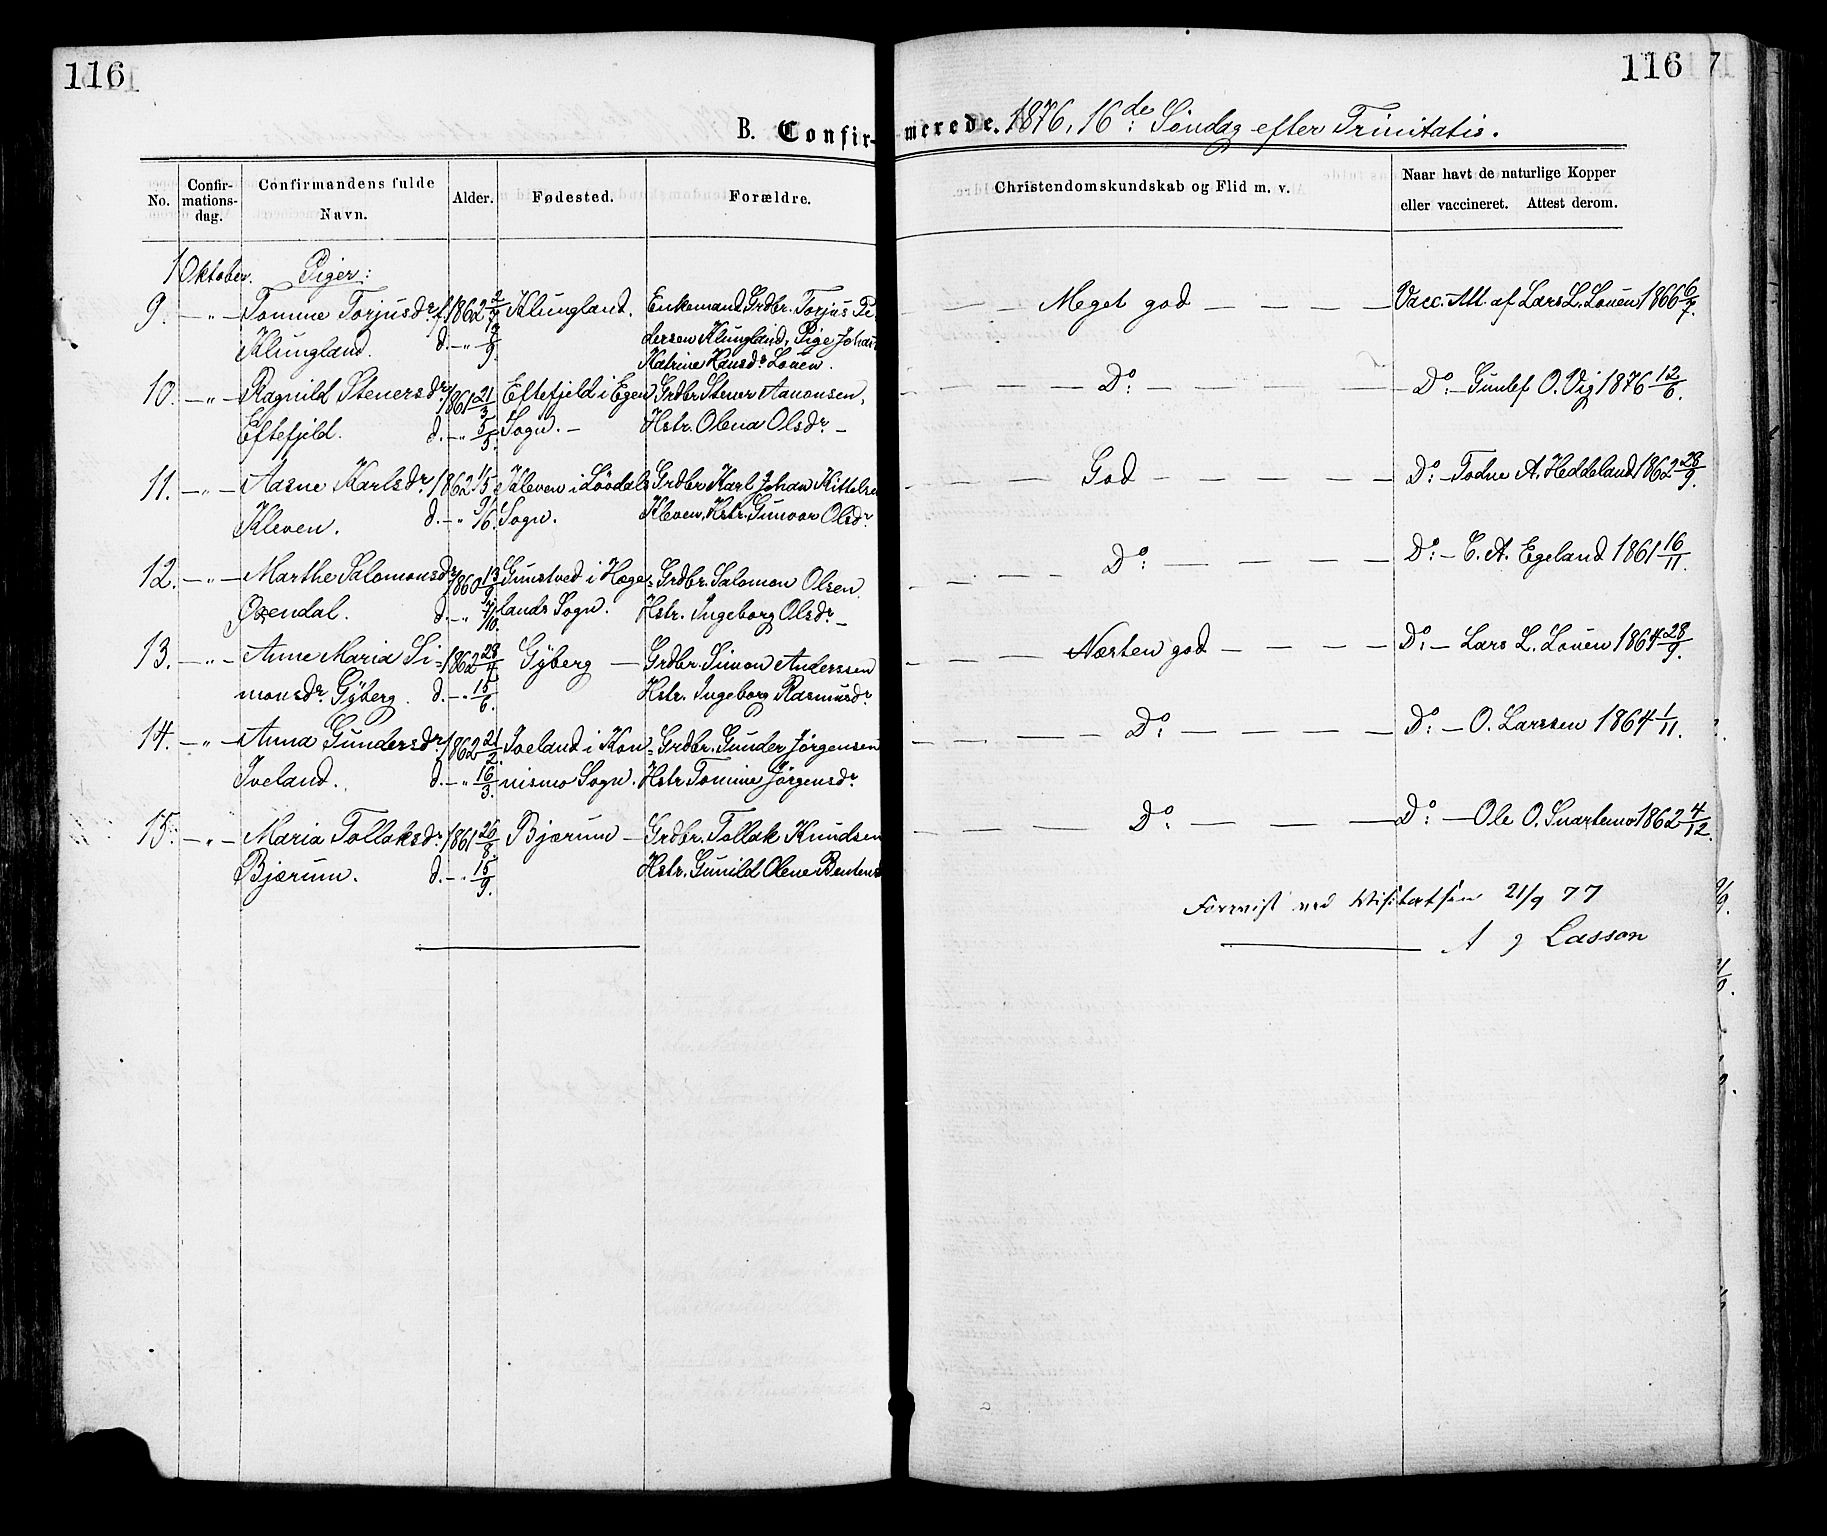 116
116
7
B. Confirmerede. 1876, 16de: Søndag efter Trinitatis.
No. Confirmationsdag. Confirmandens fulde Navn. Alder. Fødested. Forældre. Christendomskundskab og Flid m. v. Naar havt de naturlige Kopper eller vaccineret. Attest derom.
1 Oktober. Piger:
9. — " — Tomine Torjusdr. f. 1862 2/7 Klungland. Enkemand Grdbr. Torjus Pe — — Meget god — — — Vacc. Att. af Lars L. Louen 1866 6/7.
Klungland. d. — " 9/ dersen Klungland, Pige Joha
Katrine Hansdr. Louen.
10. — " — Ragnild Stenersdr. 1861 21/3 Eftefjeld i Egen Grdbr. Stener Aanonsen, — — — Do: — — — — Do: — Gunlef O. Vig 1876 12/6.
Eftefjeld. d. — " 5/5. Sogn. — Hstr. Olena Olsdr. —
11. — " — Aasne Karlsdr. 1862 11/5 Kleven i Løvdals Grdbr. Karl Johan Kittelse — — — God — — — — Do: — Todne A. Heddeland 1862 28/9.
Kleven. d. — " 9/6. Sogn. Kleven, Hstr. Gunvor Olsdr.
12. — " — Marthe Salomonsdr. 1860 13/9 Gunstved i Høge= Grdbr. Salomon Olsen. — — — Do: — — — — Do: — C. A. Egeland 1861 16/11.
Øxendal. d. — " 7/10. lands Sogn. Hstr. Ingeborg Olsdr. —
13. — " — Anne Maria Si= 1862 28/4 Gyberg — Grdbr. Simon Anderssen — — — Næsten god — — — — Do: — Lars L. Louen 1864 28/9.
monsdr. Gyberg. d. — " 15/6. Hstr. Ingeborg Rasmusdr.
14. — " — Anna Gundersdr. 1862 21/2. Iveland i Kon= Grdbr. Gunder Jörgensen — — — Do: — — — — Do: — O. Larssen 1864 1/11.
Iveland. d. — " 16/3. nismo Sogn. Hstr. Tomine Jörgensdr.
15. — " — Maria Tollaksdr. 1861 26/8. Bjærum — Grdbr. Tollak Knudsen — — — Do: — — — — Do: — Ole O. Svartemo 1862 4/12.
Bjærum. d. — " 15/9. Hstr. Gunild Olene Bentens
Forevist ved Visitatsen 21/9 77
A J Lasson